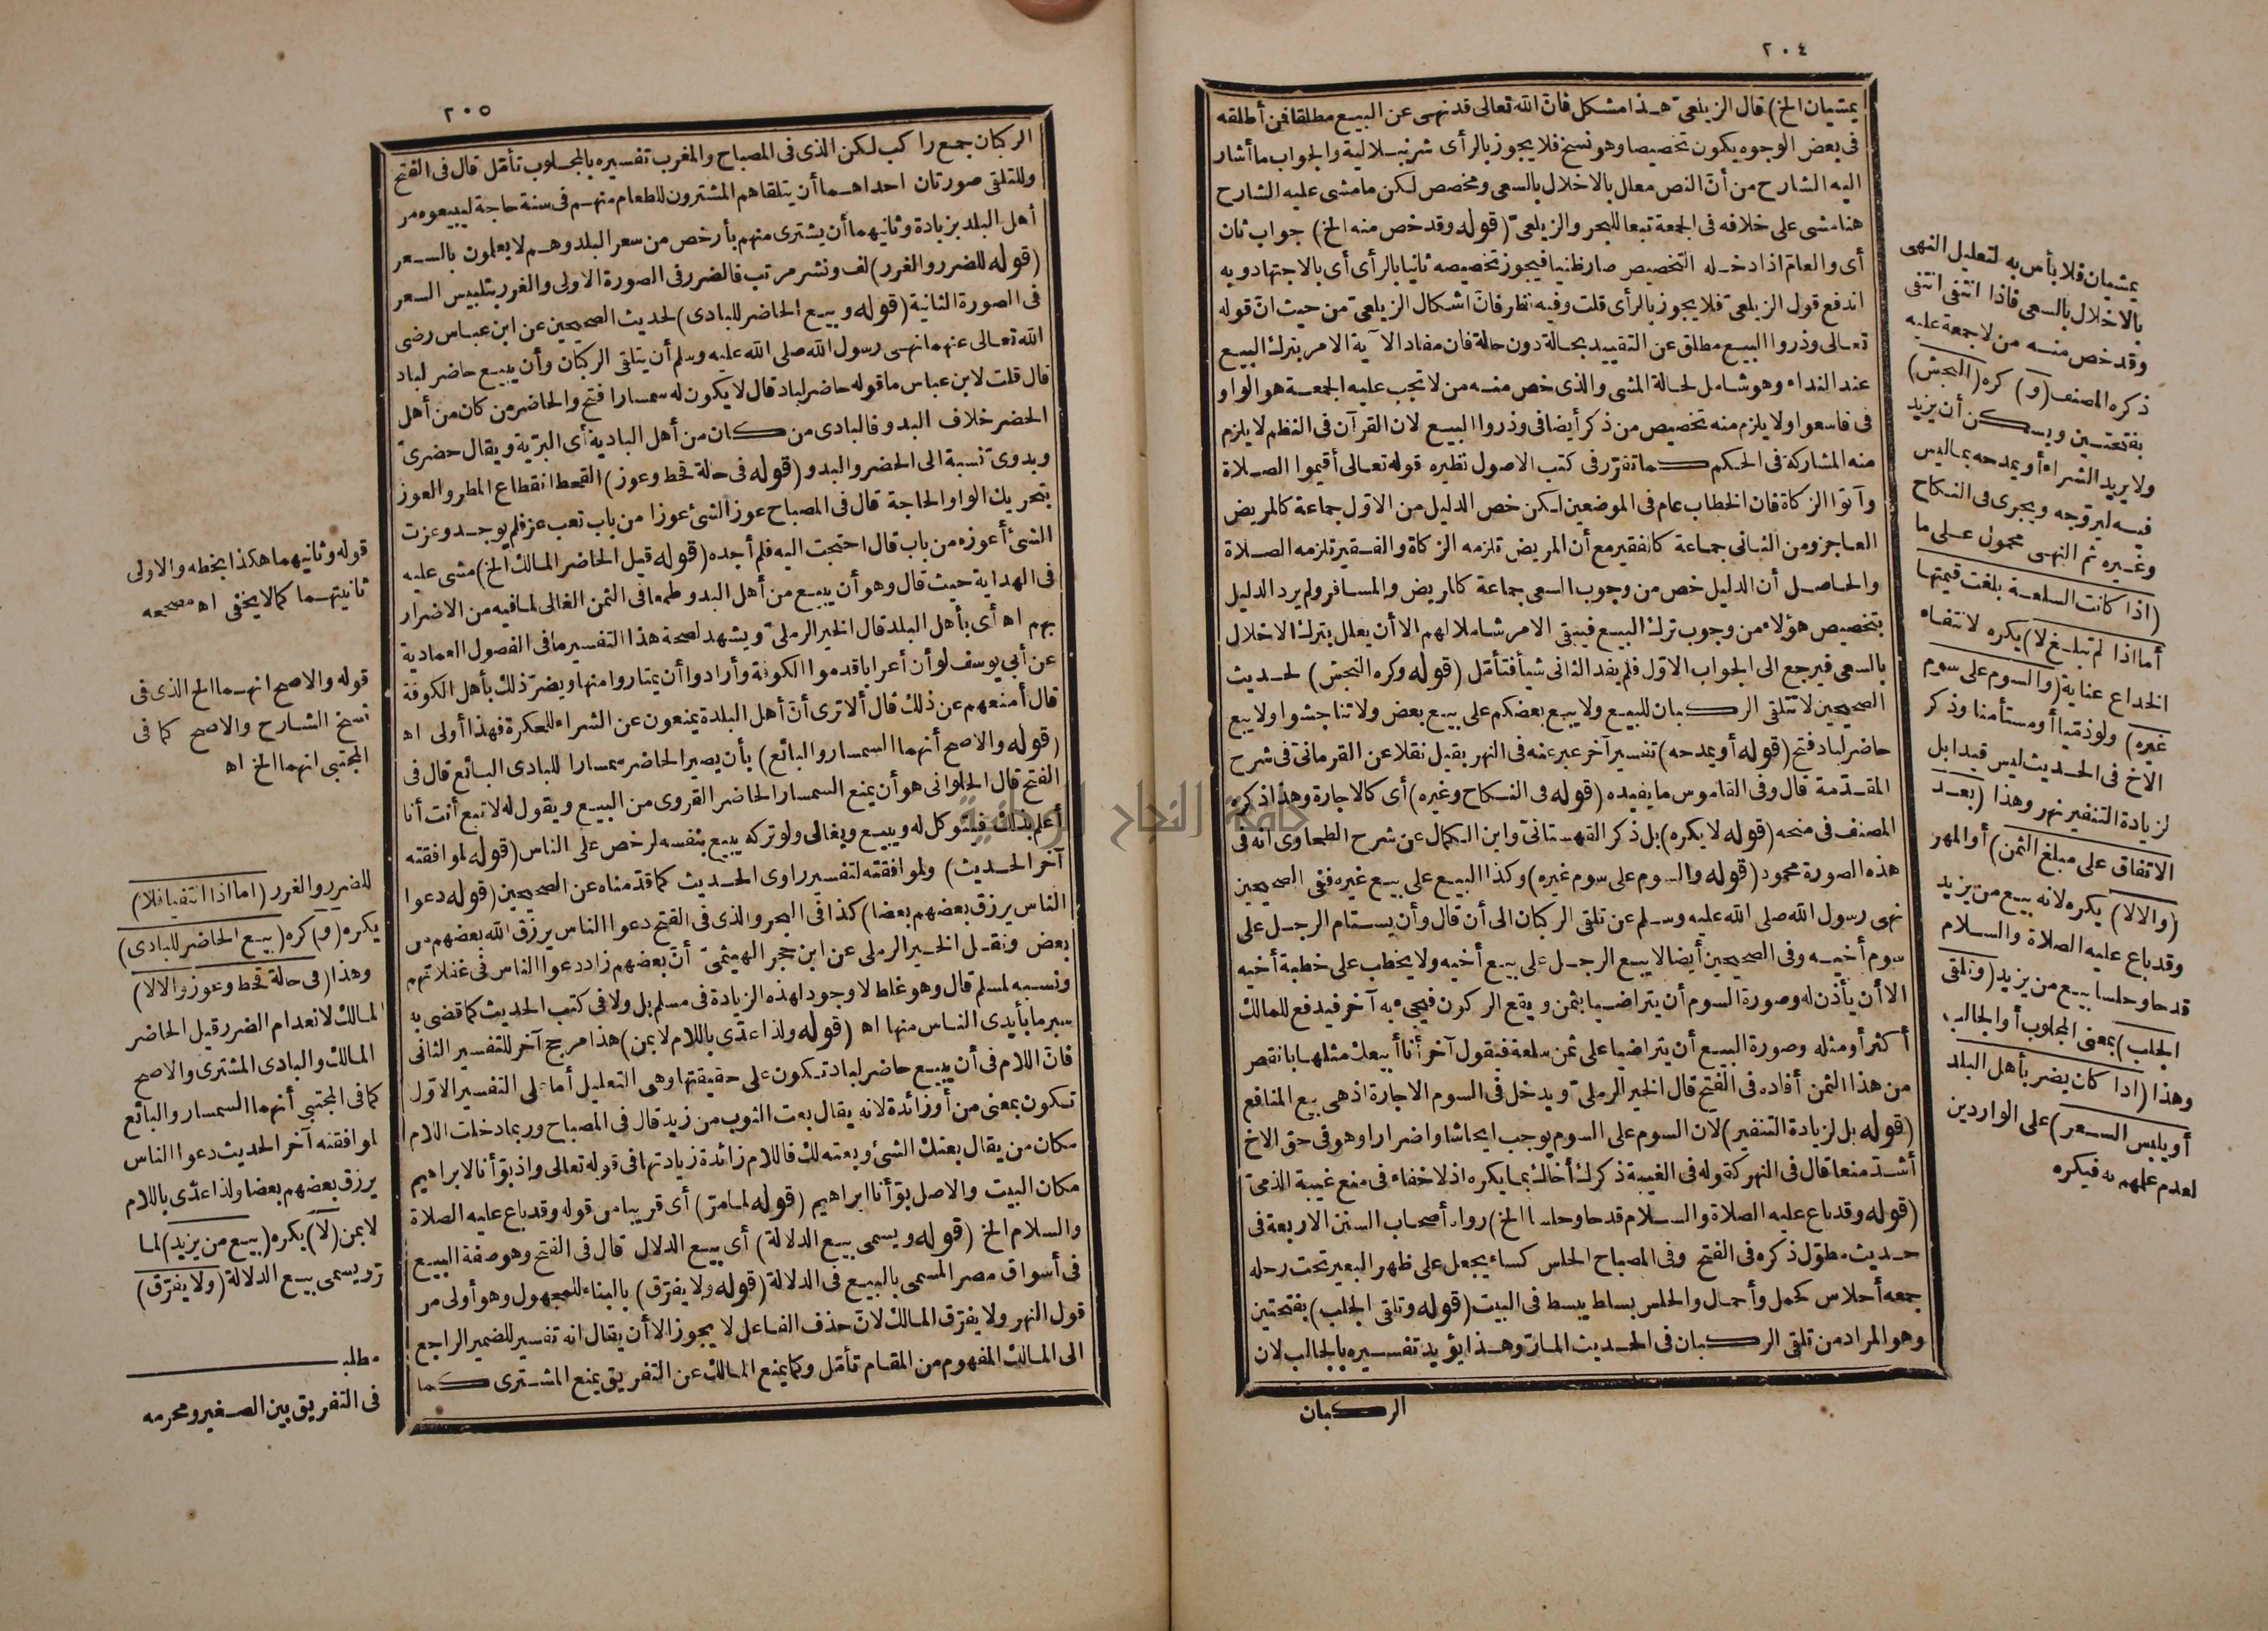 ٢٠٤
يمشيان الخ) قال الزيلعي هذا مشكل فان الله تعالى قد نهى عن البيع مطلقا فمن أطلقه
فى بعض الوجوه يكون تخصيصا وهو نسخ فلا يجوز بالرأى شرنبلالية والجواب ما أشار
اليه الشارح من أن النص معلل بالاخلال بالسعى ومخصص لكن ما مشى عليه الشارح
هنا مشى على خلافه فى الجمعة تبعا للبحر والزيلعي (قوله وقد خص منه الخ) جواب ثان
أى والعام اذا دخله التخصيص صار ظنيا فيجوز تخصيصه ثانيا بالرأى أى بالاجتهاد وبه
اندفع قول الزيلعي فلا يجوز بالرأى قلت وفيه نظر فان اشكال الزيلعي من حيث ان قوله
تعالى وذروا البيع مطلق عن التقييد بحالة دون حالة فان مفاد الآية الامر بترك البيع
عند النداء وهو شامل لحالة المشى والذى خص منه من لا تجب عليه الجمعة هو الواو
فى فاسعوا ولا يلزم منه تخصيص من ذكر أيضا فى وذروا البيع لان القرآن فى النظم لا يلزم
منه المشاركة فى الحكم كما تقرر فى كتب الاصول نظيره قوله تعالى أقيموا الصلاة
وآتوا الزكاة فان الخطاب عام فى الموضعين لكن خص الدليل من الاول جماعة كالمريض
العاجز ومن الثانى جماعة كالفقير مع أن المريض تلزمه الزكاة والفقير تلزمه الصلاة
والحاصل أن الدليل خص من وجوب السعى جماعة كالمريض والمسافر ولم يرد الدليل
بتخصيص هؤلاء من وجوب ترك البيع فيبقى الامر شاملا لهم الا أن يعلل بترك الاخلال
بالسعى فيرجع الى الجواب الاول فلم يفد الثانى شيأ فتأمل (قوله وكره النجش) لحديث
الصحيحين لا تتلقى الركبان للبيع ولا يبع بعضكم على بيع بعض ولا تناجشوا ولا يبع
حاضر لباد فتح (قوله أو يمدحه) تفسير آخر عبر عنه فى النهر بقيل نقلا عن القرمانى فى شرح
المقدمة قال وفى القاموس ما يفيده (قوله فى النكاح وغيره) أى كالاجارة وهذا ذكره
المصنف فى منحه (قوله لا يكره) بل ذكر القهستانى وابن الكمال عن شرح الطحاوى انه فى
هذه الصورة محمود (قوله والسوم على سوم غيره) وكذا البيع على بيع غيره ففى الصحيحين
نهى رسول الله صلى الله عليه وسلم عن تلقى الركبان الى أن قال وأن يستام الرجل على
سوم أخيه وفى الصحيحين أيضا لا يبع الرجل على بيع أخيه ولا يخطب على خطبة أخيه
الا أن يأذن له وصورة السوم أن يتراضيا بثمن ويقع الركون فيجىء به آخر فيدفع للمالك
أكثر أو مثله وصورة البيع أن يتراضيا على ثمن سلعة فيقول آخر أنا أبيعك مثلها بانقص
من هذا الثمن أفاده فى الفتح قال الخير الرملى ويدخل فى السوم الاجارة اذ هى بيع المنافع
(قوله بل لزيادة التنفير) لان السوم على السوم يوجب ايحاشا واضرارا وهو فى حق الاخ
أشد منعا قال فى النهر كقوله فى الغيبة ذكرك أخاك بما يكره اذ لا خفاء فى منع غيبة الذمى
(قوله وقد باع عليه الصلاة والسلام قدحا وحلسا الخ) رواه أصحاب السنن الاربعة فى
حديث مطول ذكره فى الفتح وفى المصباح الحلس كساء يجعل على ظهر البعير تحت رحله
جمعه أحلاس كحمل وأحمال والحلس بساط يبسط فى البيت (قوله وتلقى الجلب) بفتحتين
وهو المراد من تلقى الركبان فى الحديث المار وهذا يؤيد تفسيره بالجالب لان
الركبان
يمشيان فلا بأس به لتعليل النهى
بالاخلال بالسعى فاذا انتفى انتفى
وقد خص منه من لا جمعة عليه
ذكره المصنف (و) كره (النجش)
بفتحتين ويسكن أن يزيد
ولا يريد الشراء أو يمدحه بما ليس
فيه ليروجه ويجرى فى النكاح
وغيره ثم النهى محمول على ما
(اذا كانت السلعة بلغت قيمتها
أما اذا لم تبلغ لا) يكره لانتفاء
الخداع عناية (والسوم على سوم
غيره) ولو ذميا أو مستأمنا وذكر
الاخ فى الحديث ليس قيدا بل
لزيادة التنفير نهر وهذا (بعد
الاتفاق على مبلغ الثمن) أو المهر
(والا لا) يكره لانه بيع من يزيد
وقد باع عليه الصلاة والسلام
قدحا وحلسا ببيع من يزيد (وتلقى
الجلب) بمعنى المجلوب أو الجالب
وهذا (اذا كان يضر بأهل البلد
أو يلبس السعر) على الواردين
لعدم علمهم به فيكره
٢٠٥
الركبان جمع راكب لكن الذى فى المصباح والمغرب تفسيره بالمجلوب تأمل قال فى الفتح
وللتلقى صورتان احداهما أن يتلقاهم المشترون للطعام منهم فى سنة حاجة ليبيعوه من
أهل البلد بزيادة وثانيهما أن يشترى منهم بأرخص من سعر البلد وهم لا يعلمون بالسعر
(قوله للضرر والغرر) لف ونشر مرتب فالضرر فى الصورة الاولى والغرر بتلبيس السعر
فى الصورة الثانية (قوله وبيع الحاضر للبادى) لحديث الصحيحين عن ابن عباس رضى
الله تعالى عنهما نهى رسول الله صلى الله عليه وسلم أن يتلقى الركبان وأن يبيع حاضر لباد
قال قلت لابن عباس ما قوله حاضر لباد قال لا يكون له سمسارا فتح والحاضر من كان من أهل
الحضر خلاف البدو فالبادى من كان من أهل البادية أى البرية ويقال حضرى
وبدوى نسبة الى الحضر والبدو (قوله فى حالة قحط وعوز) القحط انقطاع المطر والعوز
بتحريك الواو الحاجة قال فى المصباح عوز الشئ عوزا من باب تعب عز فلم يوجد وعزت
الشئ أعوزه من باب قال احتجت اليه فلم أجده (قوله قيل الحاضر المالك الخ) مشى عليه
فى الهداية حيث قال وهو أن يبيع من أهل البدو طمعا فى الثمن الغالى لما فيه من الاضرار
بهم اه أى بأهل البلد قال الخير الرملى ويشهد لصحة هذا التفسير ما فى الفصول العمادية
عن أبى يوسف لو أن أعرابا قدموا الكوفة وأرادوا أن يمتاروا منها ويضر ذلك بأهل الكوفة
قال أمنعهم عن ذلك قال ألا ترى أن أهل البلدة يمنعون عن الشراء للحكرة فهذا أولى اه
(قوله والاصح أنهما السمسار والبائع) بأن يصير الحاضر سمسارا للبادى البائع قال فى
الفتح قال الحلوانى هو أن يمنع السمسار الحاضر القروى من البيع ويقول له لا تبع أنت أنا
أعلم بذلك فيتوكل له ويبيع ويغالى ولو تركه يبيع بنفسه لرخص على الناس (قوله لموافقته
آخر الحديث) ولموافقته لتفسير راوى الحديث كما قدمناه عن الصحيحين (قوله دعوا
الناس يرزق بعضهم بعضا) كذا فى البحر والذى فى الفتح دعوا الناس يرزق الله بعضهم من
بعض ونقل الخير الرملى عن ابن حجر الهيثمى أن بعضهم زاد دعوا الناس فى غفلاتهم
ونسبه لمسلم قال وهو غلط لا وجود لهذه الزيادة فى مسلم بل ولا فى كتب الحديث كما قضى به
سبر ما بأيدى الناس منها اه (قوله ولذا عدى باللام لا بمن) هذا مرجح آخر للتفسير الثانى
فان اللام فى أن يبيع حاضر لباد تكون على حقيقتها وهى التعليل أما على التفسير الاول
تكون بمعنى من أو زائدة لانه يقال بعت الثوب من زيد قال فى المصباح وربما دخلت اللام
مكان من يقال بعتك الشئ وبعته لك فاللام زائدة زيادتها فى قوله تعالى واذ بوأنا لابراهيم
مكان البيت والاصل بوأنا ابراهيم (قوله لما مر) أى قريبا من قوله وقد باع عليه الصلاة
والسلام الخ (قوله ويسمى بيع الدلالة) أى بيع الدلال قال فى الفتح وهو صفة البيع
فى أسواق مصر المسمى بالبيع فى الدلالة (قوله ولا يفرق) بالبناء للمجهول وهو أولى من
قول النهر ولا يفرق المالك لان حذف الفاعل لا يجوز الا أن يقال انه تفسير للضمير الراجع
الى المالك المفهوم من المقام تأمل وكما يمنع المالك عن التفريق يمنع المشترى كما
قوله وثانيهما هكذا بخطه والاولى
ثانيتهما كما لا يخفى اه مصححه
قوله والاصح انهما الخ الذى فى
نسخ الشارح والاصح كما فى
المجتبى انهما الخ اه
للضرر والغرر (اما اذا انتفيا فلا)
يكره (و) كره (بيع الحاضر للبادى)
وهذا (فى حالة قحط وعوز والا لا)
المالك لانعدام الضرر قيل الحاضر
المالك والبادى المشترى والاصح
كما فى المجتبى أنهما السمسار والبائع
لموافقته آخر الحديث دعوا الناس
يرزق بعضهم بعضا ولذا عدى باللام
لا بمن (لا) يكره (بيع من يزيد) لما
مر ويسمى بيع الدلالة (ولا يفرق)
مطلب
فى التفريق بين الصغير ومحرمه
جامعة النجاح الوطنية